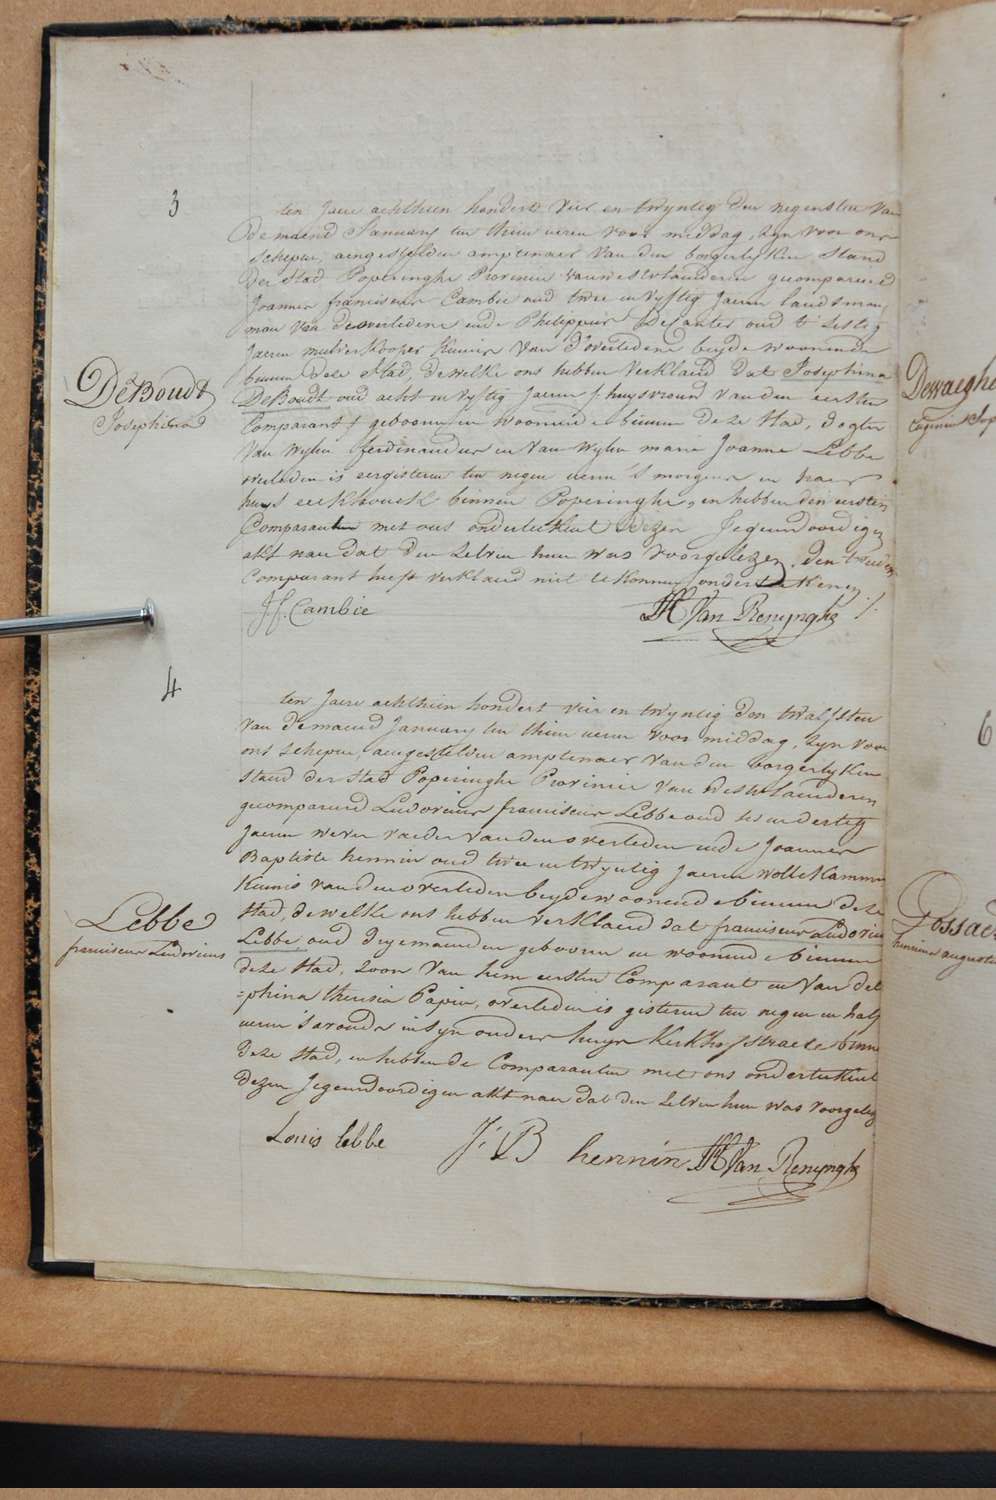 3
ten Jaere achthien hondert vier en twyntig den negensten van
de maend January ten thien ueren voor middag, zyn voor ons
schepen, aengestelden amptenaer van den borgerlyken stand
der stad Poperinghe Provincie van westvlaenderen gecompareerd
Joannes franciscus Cambie oud twee en vyftig Jaeren landsman,
man van de overledene ende Philippus Desanter oud t'sestig
Jaeren kooper kennis van d'overledene beyde woonende
binnen deze stad, dewelke ons hebben verklaerd dat Josephina
DeBoudt oud acht en vyftig Jaeren huysvrouw van den eersten
Comparant geboren en woonende binnen deze stad, dogter
van wylen ferdinandus en van wylen marie Joanne Lebbe
overleden is eergisteren ten negen ueren 's morgens in haer
huys eekhoutk binnen Poperinghe, en hebben den eersten
Comparanten met ons onderteekent dezen Jegenwoordigen
akt naer dat den zelven hun was voorgelezen, den tweeden
Comparant heeft verklaerd niet te konnen onderteekenen
DeBoudt
Josephina
J. f. Cambie
Van Renynghe
4
ten Jaere achthien hondert vier en twyntig den twalfsten
van de maend January ten thien ueren voor middag, zyn voor
ons schepen, aengestelden amptenaer van den borgerlyken
stand der stad Poperinghe Provincie van westvlaenderen
gecompareerd Ludovicus franciscus Lebbe oud en dertig
Jaeren wever vaeder van den overleden ende Joannes
Baptiste hennin oud twee en twyntig Jaeren wollekammer
kennis van den overleden beyde woonende binnen deze
stad, dewelke ons hebben verklaerd dat franciscus Ludovicus
Lebbe oud dry maenden geboren en woonende binnen
deze stad, zoon van hem eersten Comparant en van del
=phina theresia Papin, overleden is gisteren ten negen en half
ueren 's avonds in syn ouders huys kerkhofstraete binnen
deze stad, en hebben de Comparanten met ons onderteekent
dezen Jegenwoordigen akt naer dat den zelven hun was voorgelez
Lebbe
franciscus Ludovicus
Louis lebbe
J: B hennin
Van Renynghe
Dewaeghe
6
Gossae
henricus auguste